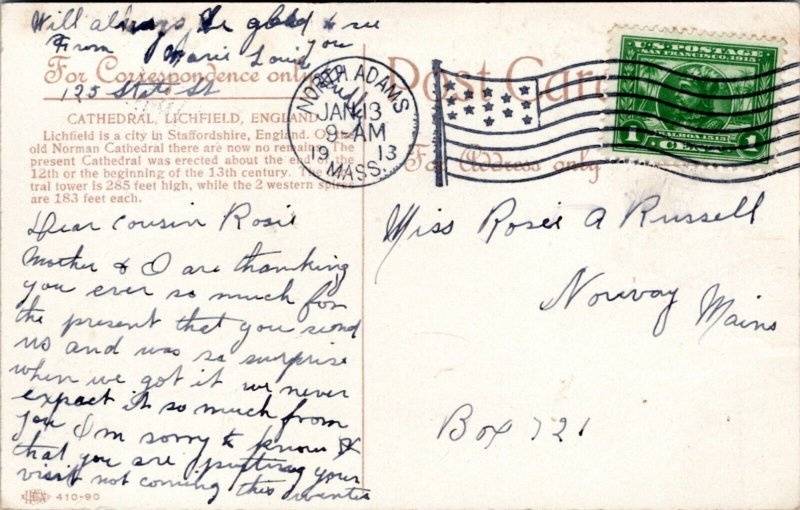 Will always be glad to see
From Marie Louise you
For Correspondence only
125 State St
CATHEDRAL, LICHFIELD, ENGLAND
Lichfield is a city in Staffordshire, England. Of
old Norman Cathedral there are now no remains. The
present Cathedral was erected about the end of the
12th or the beginning of the 13th century. The
tral tower is 285 feet high, while the 2 western spires
are 183 feet each.
Dear Cousin Rosie
Mother & I are thanking
you ever so much for
the present that you send
us and was so surprise
when we got it we never
expect it so much from
you I'm sorry to know
that you are putting your
visit not coming this winter
410-90
NORTH ADAMS
JAN 13
9-AM
19 13
MASS.
Post Card
For Address only
U·S·POSTAGE
SAN FRANCISCO, 1915
BALBOA 1513
1 CENT 1
Miss Rosie A Russell
Norway Maine
Box 721